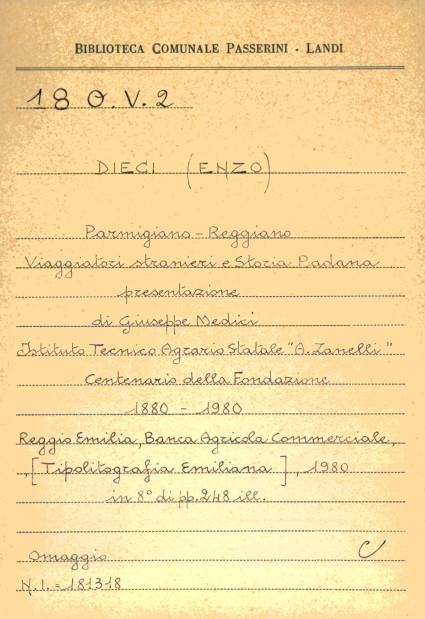 BIBLIOTECA COMUNALE PASSERINI - LANDI
18 O.V.2
DIECI (ENZO)
Parmigiano - Reggiano
Viaggiatori stranieri e Storia Padana
presentazione
di Giuseppe Medici
Istituto Tecnico Agrario Statale "A. Zanelli"
Centenario della Fondazione
1880 - 1980
Reggio Emilia, Banca Agricola Commerciale,
, [Tipolitografia Emiliana], 1980
in 8° di pp. 248 ill.
Omaggio C
N.I. = 181318